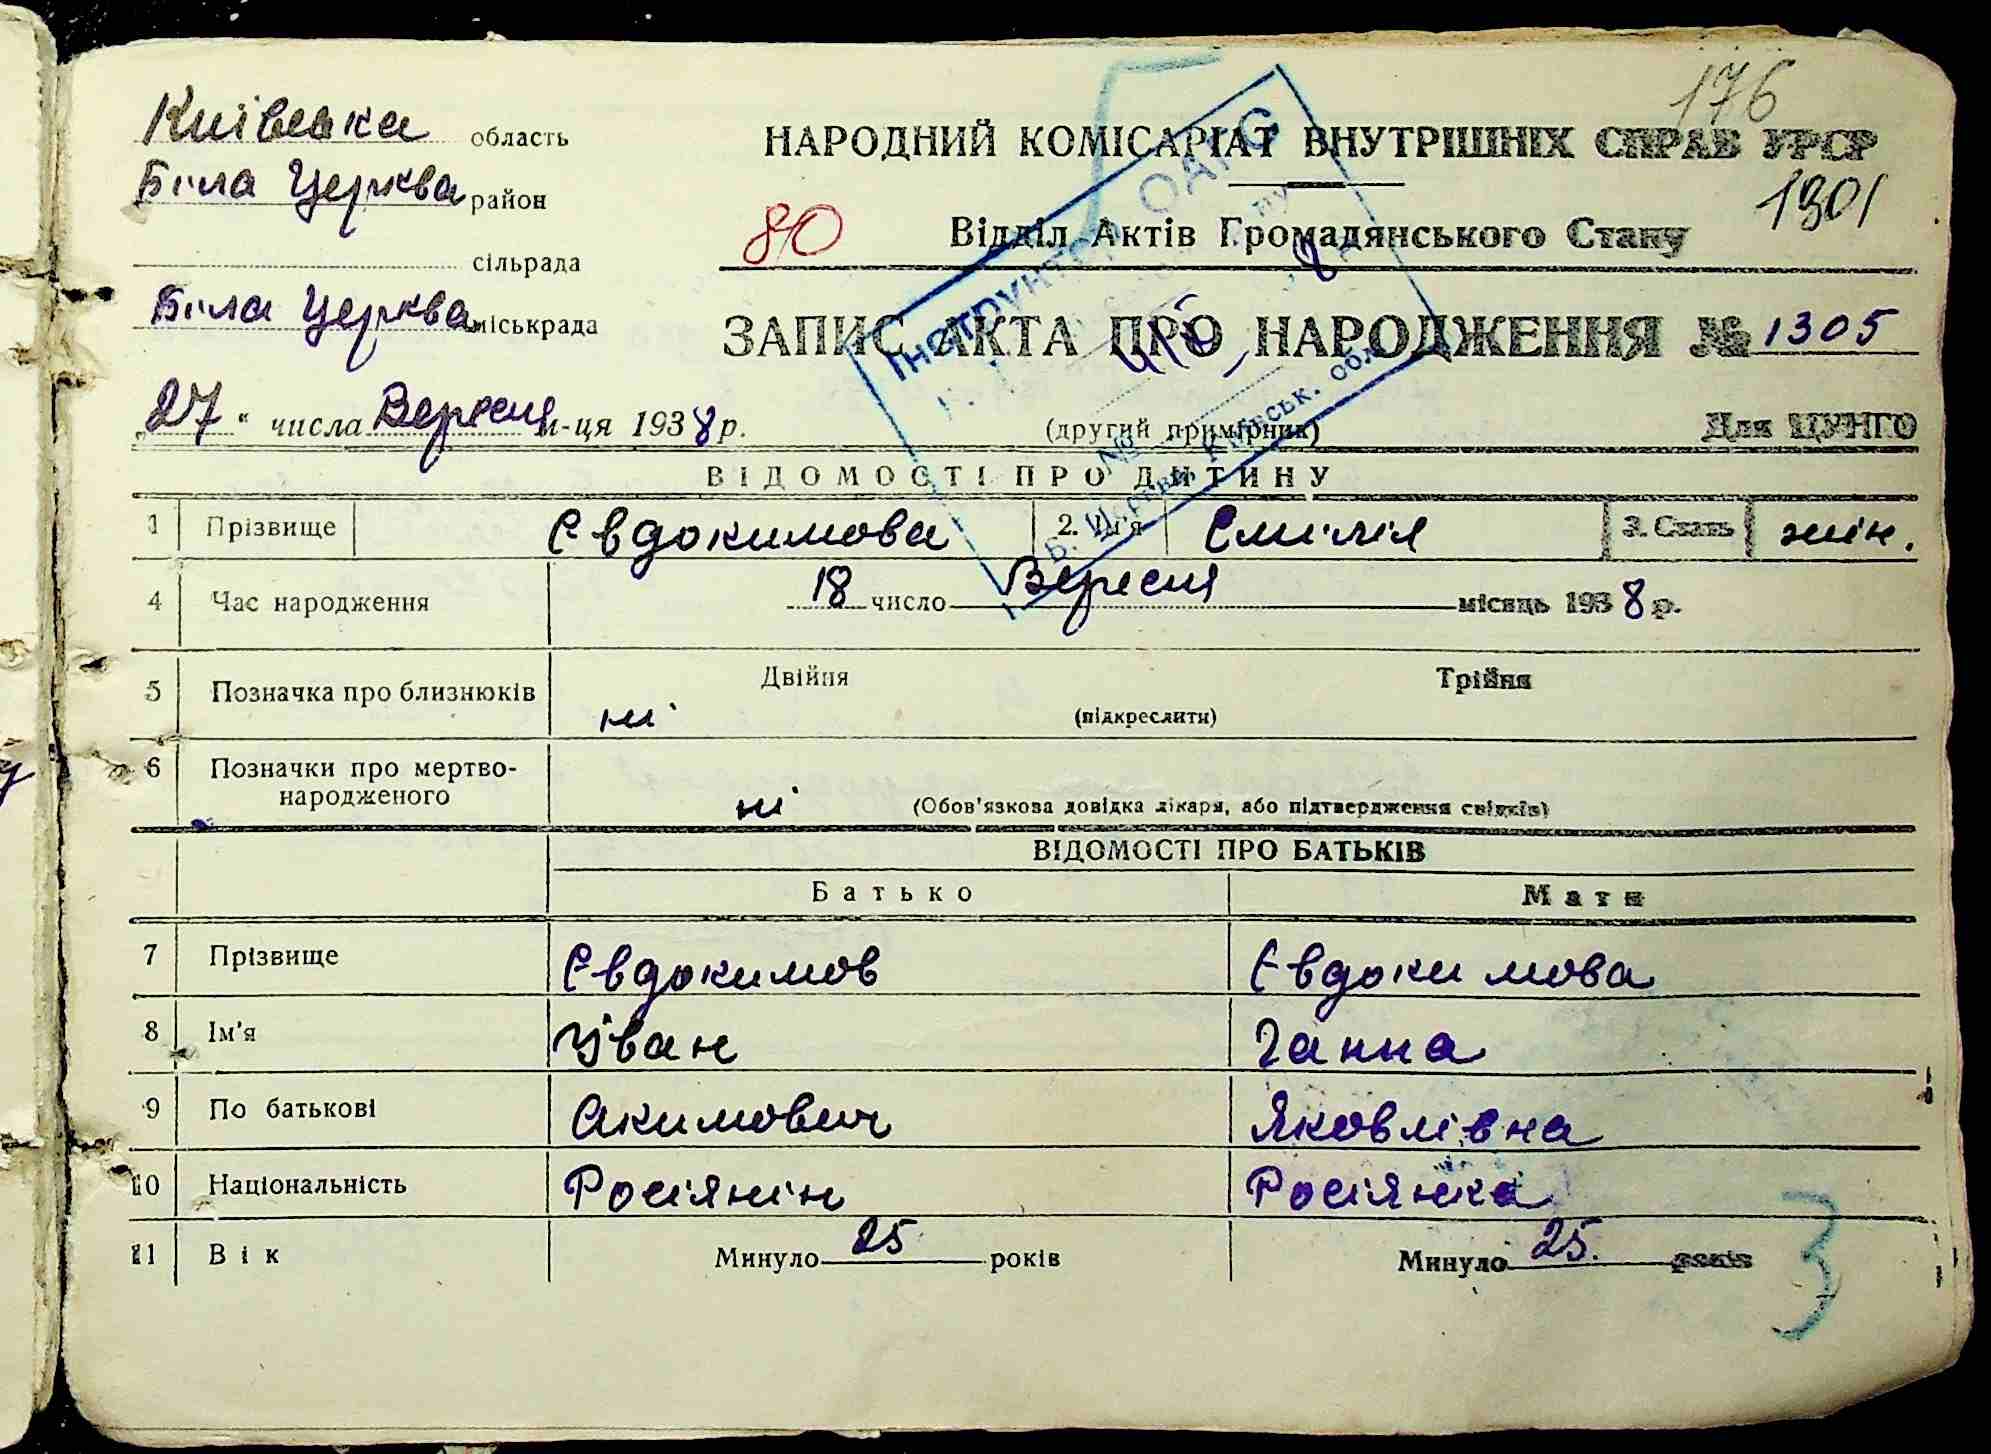 176
Київська область
НАРОДНИЙ КОМІСАРІАТ ВНУТРІШНІХ СПРАВ УРСР
Біла Церква район
1301
80
Відділ Актів Громадянського Стану
сільрада
Біла Церква міськрада
ЗАПИС АКТА ПРО НАРОДЖЕННЯ № 1305
„27" числа Вересня м-ця 1938 р.
(другий примірник)
Для ЦУНГО
ВІДОМОСТІ ПРО ДИТИНУ
1 Прізвище Євдокимова 2. Ім'я Емілія 3. Стать жін.
4 Час народження 18 число Вересня місяць 1938 р.
5 Позначка про близнюків ні Двійня Трійня
(підкреслити)
6 Позначки про мертво-
народженого ні (Обов'язкова довідка лікаря, або підтвердження свідків)
ВІДОМОСТІ ПРО БАТЬКІВ
Батько Мати
7 Прізвище Євдокимов Євдокимова
8 Ім'я Іван Ганна
9 По батькові Акимович Яковлівна
10 Національність Росіянін Росіянка
11 Вік Минуло 25 років Минуло 25. років
3
Інструктор ОАГС